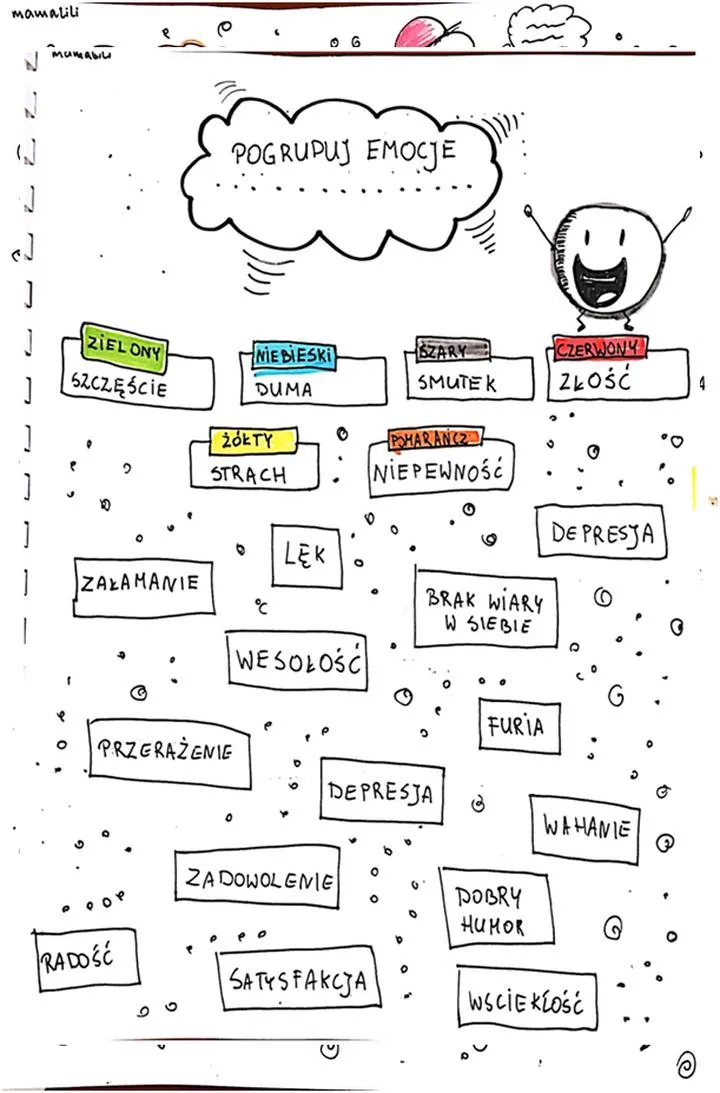 mamalili
mamalili
POGRUPUJ EMOCJE
ZIELONY
SZCZĘŚCIE
NIEBIESKI
DUMA
SZARY
SMUTEK
CZERWONY
ZŁOŚĆ
ŻÓŁTY
STRACH
POMARAŃCZ
NIEPEWNOŚĆ
DEPRESJA
LĘK
ZAŁAMANIE
BRAK WIARY
W SIEBIE
WESOŁOŚĆ
FURIA
PRZERAŻENIE
DEPRESJA
WAHANIE
ZADOWOLENIE
DOBRY
HUMOR
RADOŚĆ
SATYSFAKCJA
WSCIEKŁOŚĆ